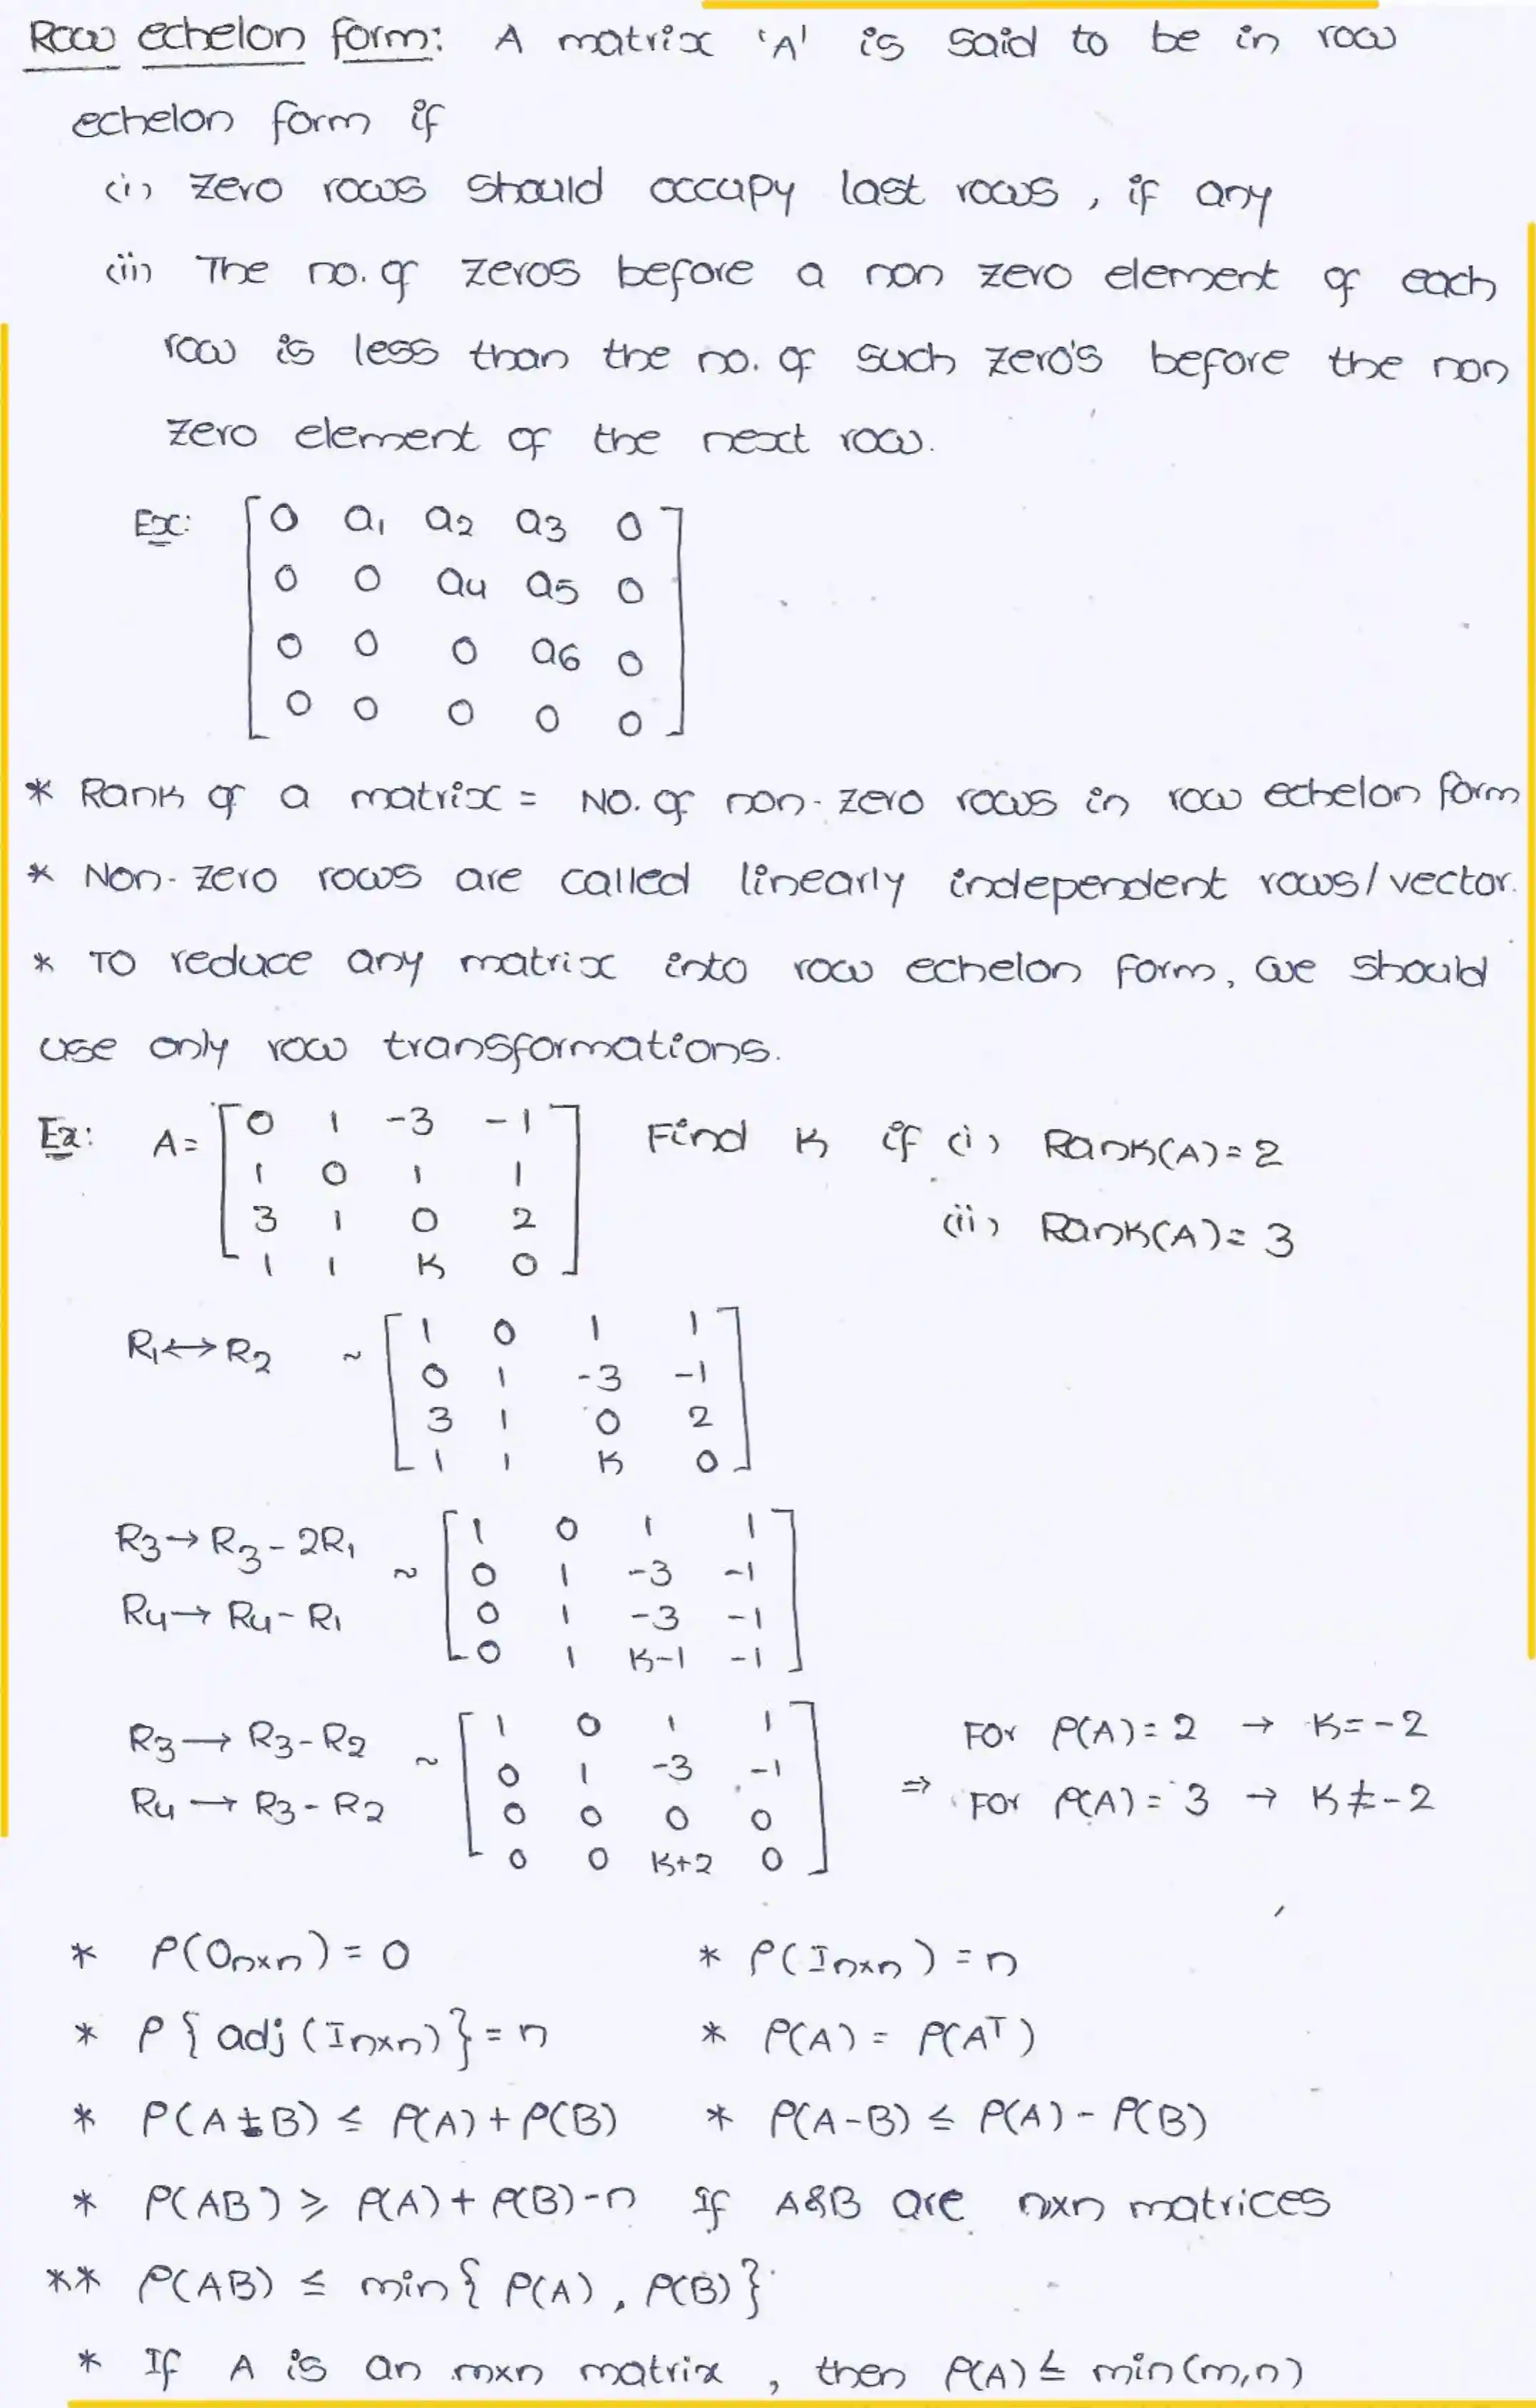 Row echelon form: A matrix 'A' is said to be in row
echelon form if
(i) Zero rows should occupy last rows, if any
(ii) The no. of zeros before a non zero element of each
row is less than the no. of such zero's before the non
zero element of the next row.
Ex: [0 a1 a2 a3 0
0 0 a4 a5 0
0 0 0 a6 0
0 0 0 0 0]
* Rank of a matrix = No. of non-zero rows in row echelon form
* Non-zero rows are called linearly independent rows/vector.
* To reduce any matrix into row echelon form, we should
use only row transformations.
Ex: A = [0 1 -3 -1 Find K if (i) Rank(A) = 2
1 0 1 1
3 1 0 2 (ii) Rank(A) = 3
1 1 K 0]
R1 ↔ R2 ~ [1 0 1 1
0 1 -3 -1
3 1 0 2
1 1 K 0]
R3 → R3 - 2R1 ~ [1 0 1 1
0 1 -3 -1
R4 → R4 - R1 0 1 -3 -1
0 1 K-1 -1]
R3 → R3 - R2 ~ [1 0 1 1 For ρ(A) = 2 → K = -2
0 1 -3 -1
R4 → R3 - R2 0 0 0 0 ⇒ For ρ(A) = 3 → K ≠ -2
0 0 K+2 0]
* ρ(On×n) = 0 * ρ(In×n) = n
* ρ{adj(In×n)} = n * ρ(A) = ρ(A^T)
* ρ(A±B) ≤ ρ(A) + ρ(B) * ρ(A-B) ≤ ρ(A) - ρ(B)
* ρ(AB) ≥ ρ(A) + ρ(B) - n If A&B are n×n matrices
** ρ(AB) ≤ min{ρ(A), ρ(B)}
* If A is an m×n matrix, then ρ(A) ≤ min(m,n)